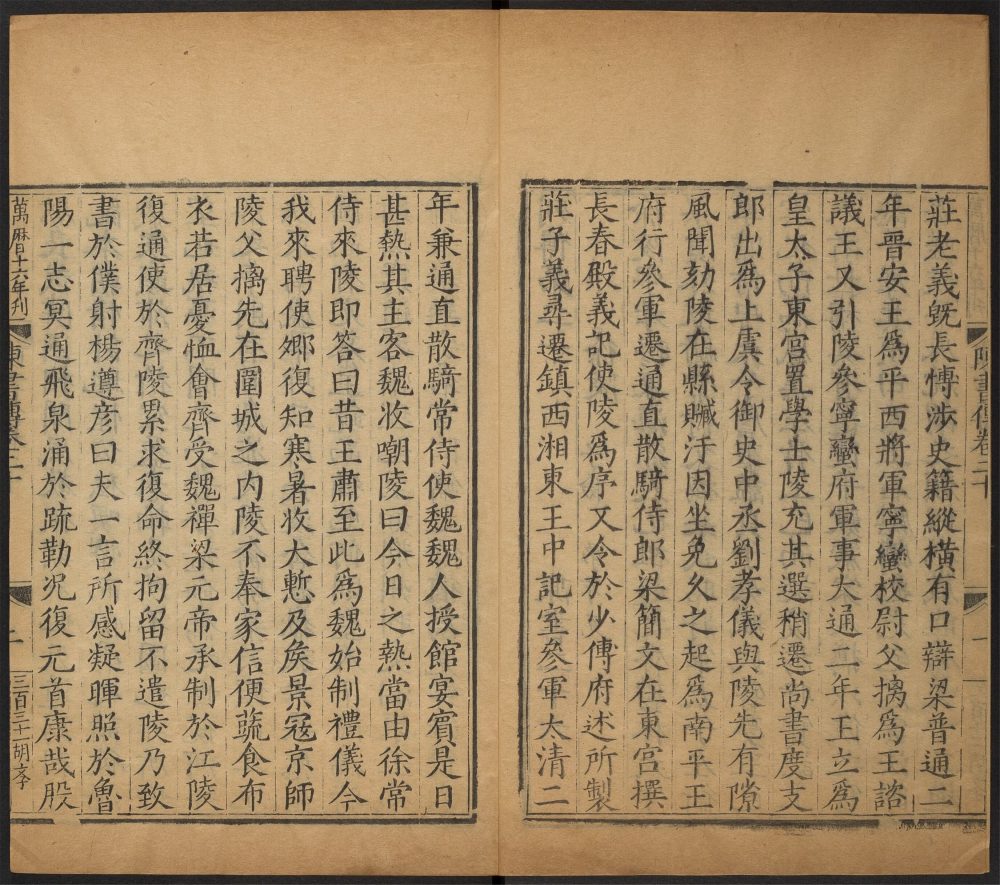 陳書傳卷二十
一
莊老義既長愽涉史籍縱橫有口辯梁普通二
年晉安王爲平西將軍寧蠻校尉父摛爲王諮
議王又引陵參寧蠻府軍事大通二年王立爲
皇太子東宮置學士陵充其選稍遷尚書度支
郎出爲上虞令御史中丞劉孝儀與陵先有隙
風聞劾陵在縣贓汙因坐免久之起爲南平王
府行參軍遷通直散騎侍郎梁簡文在東宮撰
長春殿義記使陵爲序又令於少傅府述所製
莊子義尋遷鎮西湘東王中記室參軍太清二
年兼通直散騎常侍使魏魏人授館宴賓是日
甚熱其主客魏收嘲陵曰今日之熱當由徐常
侍來陵即答曰昔王肅至此爲魏始制禮儀今
我來聘使卿復知寒暑收大慙及矦景寇京師
陵父摛先在圍城之内陵不奉家信便蔬食布
衣若居憂恤會齊受魏禪梁元帝承制於江陵
復通使於齊陵累求復命終拘留不遣陵乃致
書於僕射楊遵彦曰夫一言所感凝暉照於魯
陽一志冥通飛泉涌於疏勒况復元首康哉股
萬曆十六年刊
陳書傳卷二十
二
三百三十一胡文